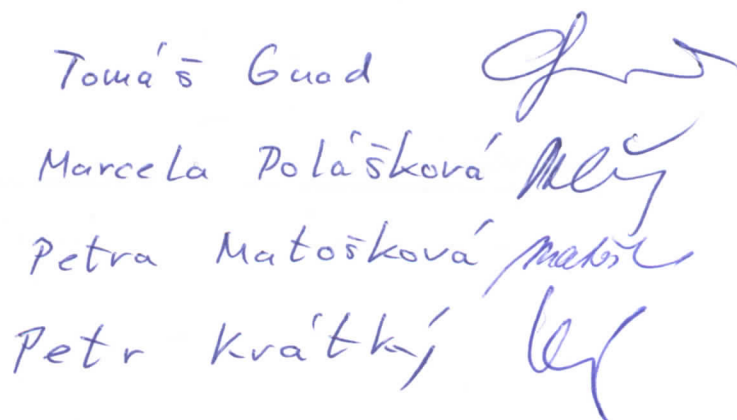 Tomáš Gnad
Marcela Polášková
Petra Matošková
Petr Krátký